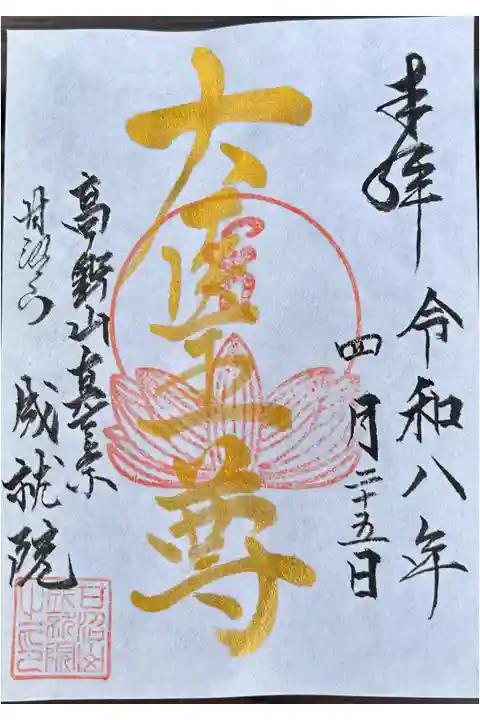 奉拝 令和八年
四月二十五日
大医王尊
高野山真言宗
成就院